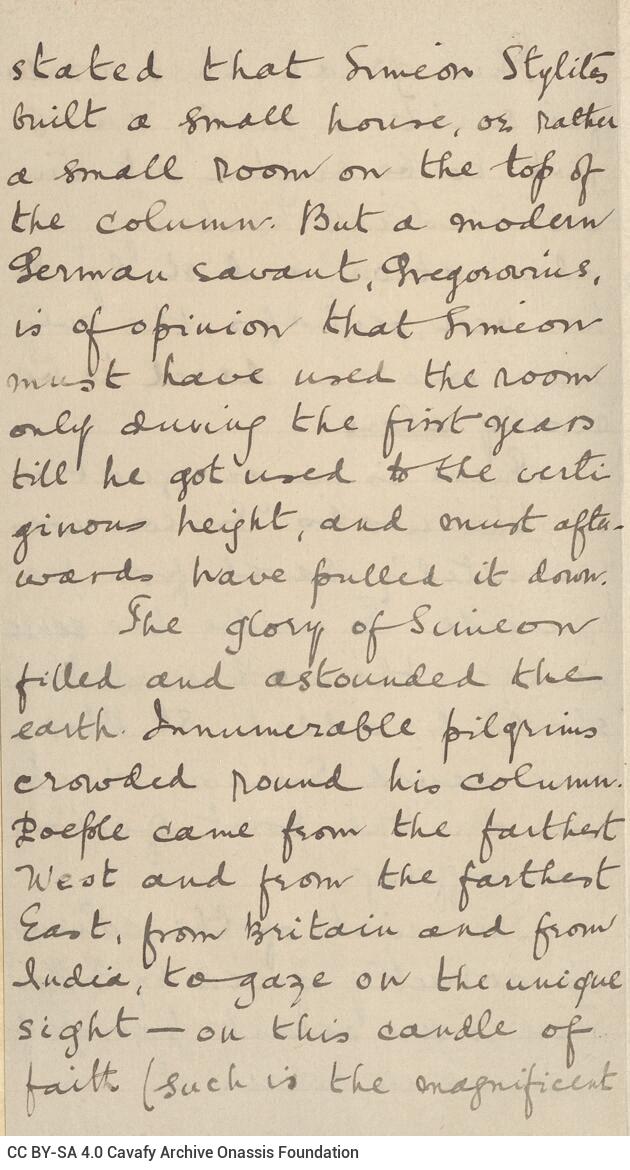 stated that Simeon Stylites
built a small house, or rather
a small room on the top of
the column. But a modern
German savant, Gregorovius,
is of opinion that Simeon
must have used the room
only during the first years
till he got used to the verti
ginous height, and must after-
wards have pulled it down.
The glory of Simeon
filled and astounded the
earth. Innumerable pilgrims
crowded round his column.
Poeple came from the farthest
West and from the farthest
East, from Britain and from
India, to gaze on the unique
sight — on this candle of
faith (such is the magnificent
CC BY-SA 4.0 Cavafy Archive Onassis Foundation